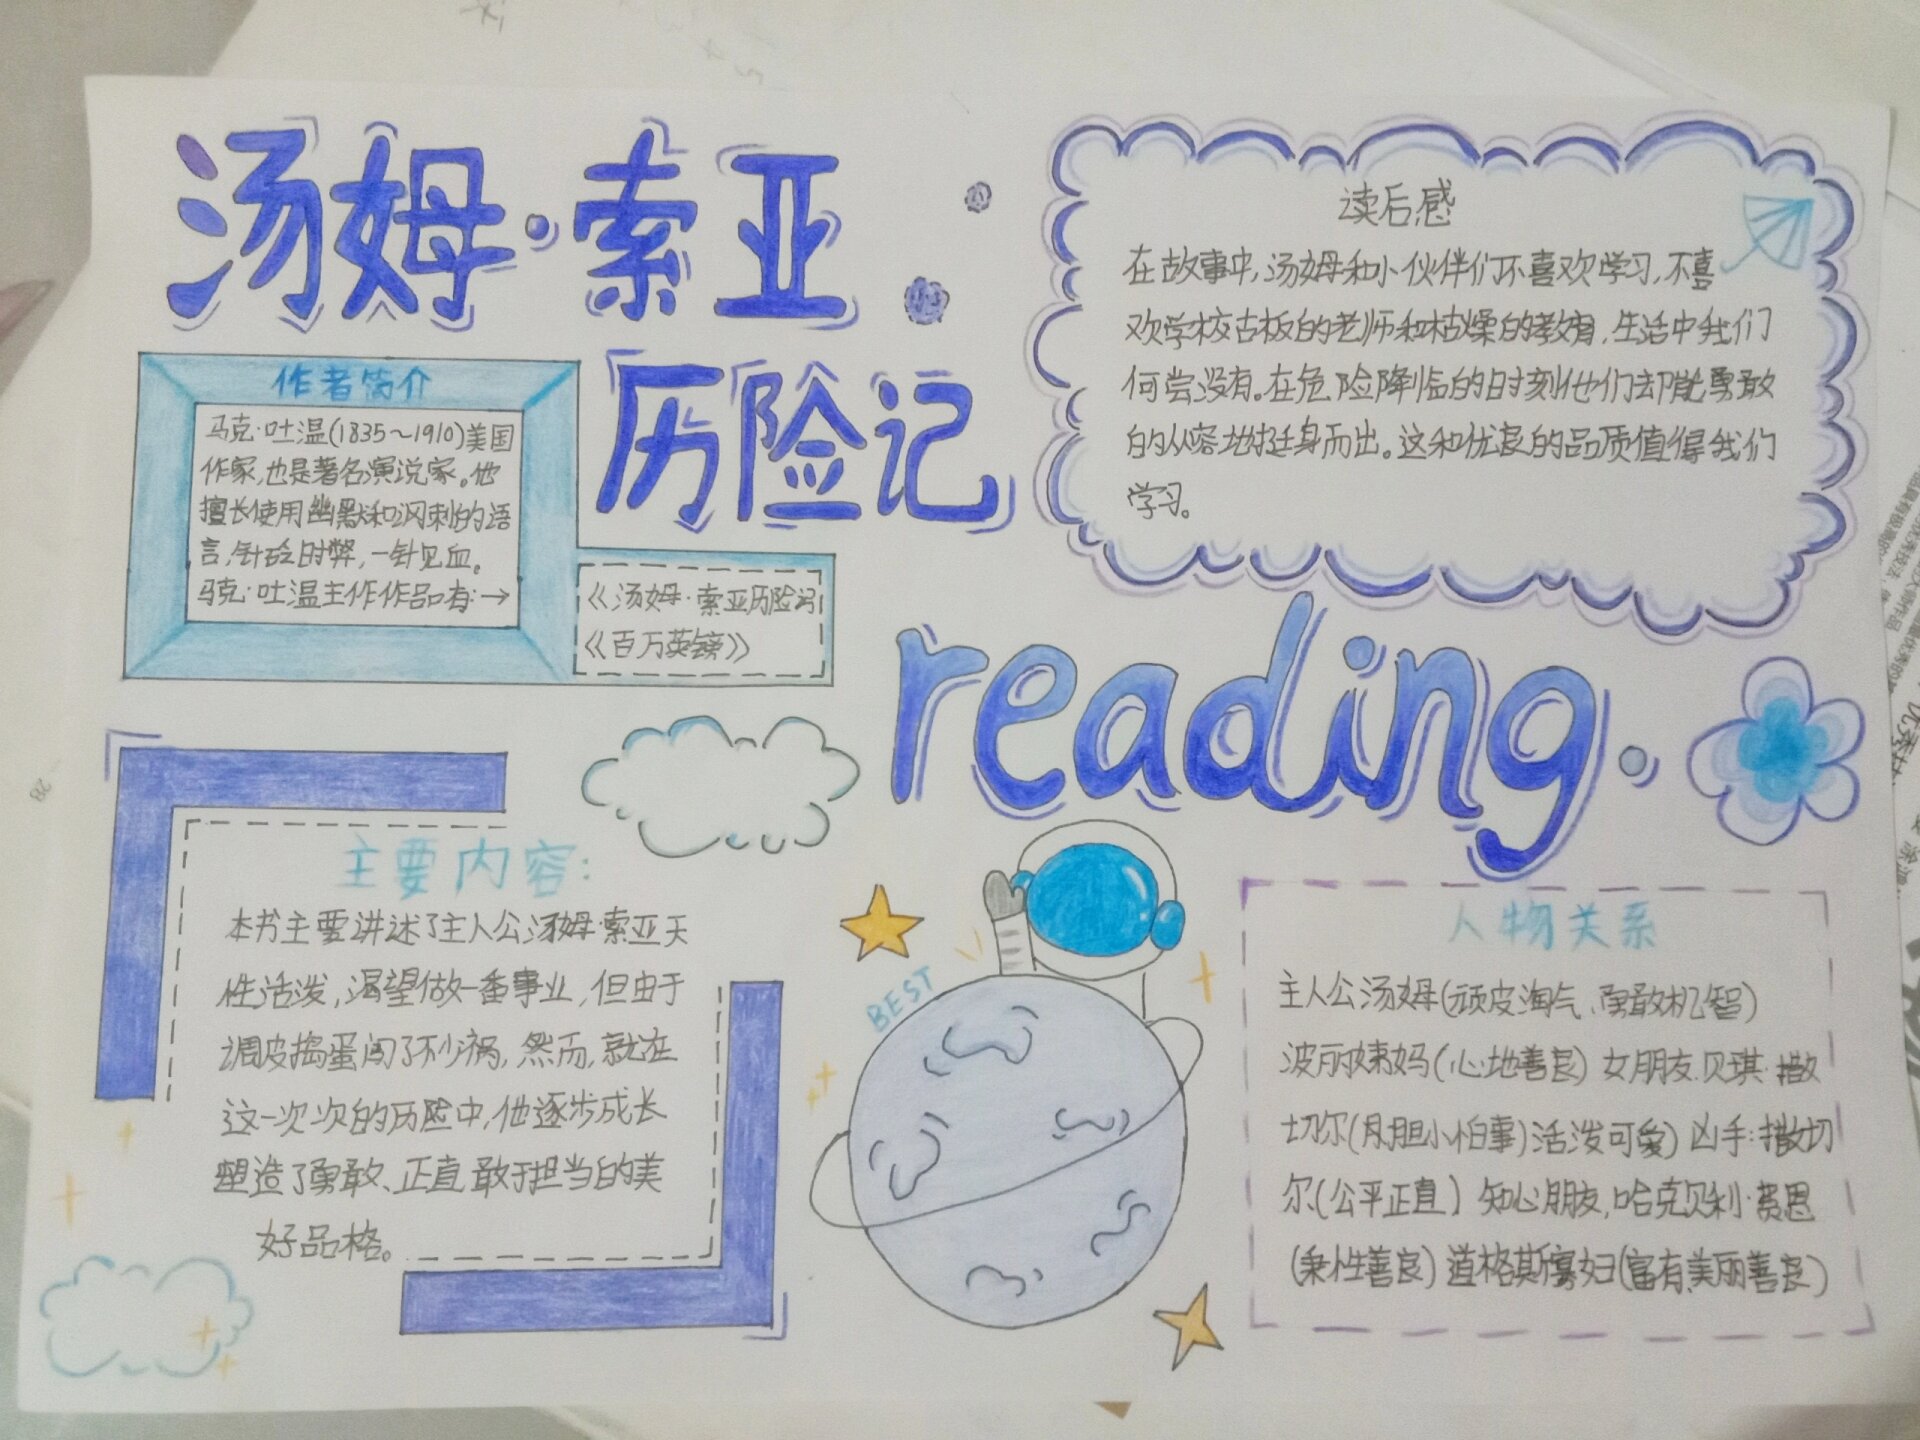 汤姆·索亚
历险记
作者简介
马克·吐温(1835～1910)美国
作家,也是著名演说家。他
擅长使用幽默和讽刺的语
言,针砭时弊,一针见血。
马克·吐温主作作品有:→
《汤姆·索亚历险记
《百万英镑》
读后感
在故事中,汤姆和小伙伴们不喜欢学习,不喜
欢学校古板的老师和枯燥的教育,生活中我们
何尝没有。在危险降临的时刻他们却能勇敢
的从容地挺身而出。这和优良的品质值得我们
学习。
reading.
主要内容:
本书主要讲述了主人公汤姆·索亚天
性活泼,渴望做一番事业,但由于
调皮捣蛋闯了不少祸,然而,就在
这一次次的历险中,他逐步成长
塑造了勇敢、正直敢于担当的美
好品格。
BEST
人物关系
主人公汤姆(顽皮淘气、勇敢机智)
波丽姨妈(心地善良) 女朋友.贝琪·撒
切尔(胆小怕事)活泼可爱) 凶手:撒切
尔(公平正直) 知心朋友,哈克贝利·费恩
(秉性善良) 道格斯寡妇(富有、美丽善良)